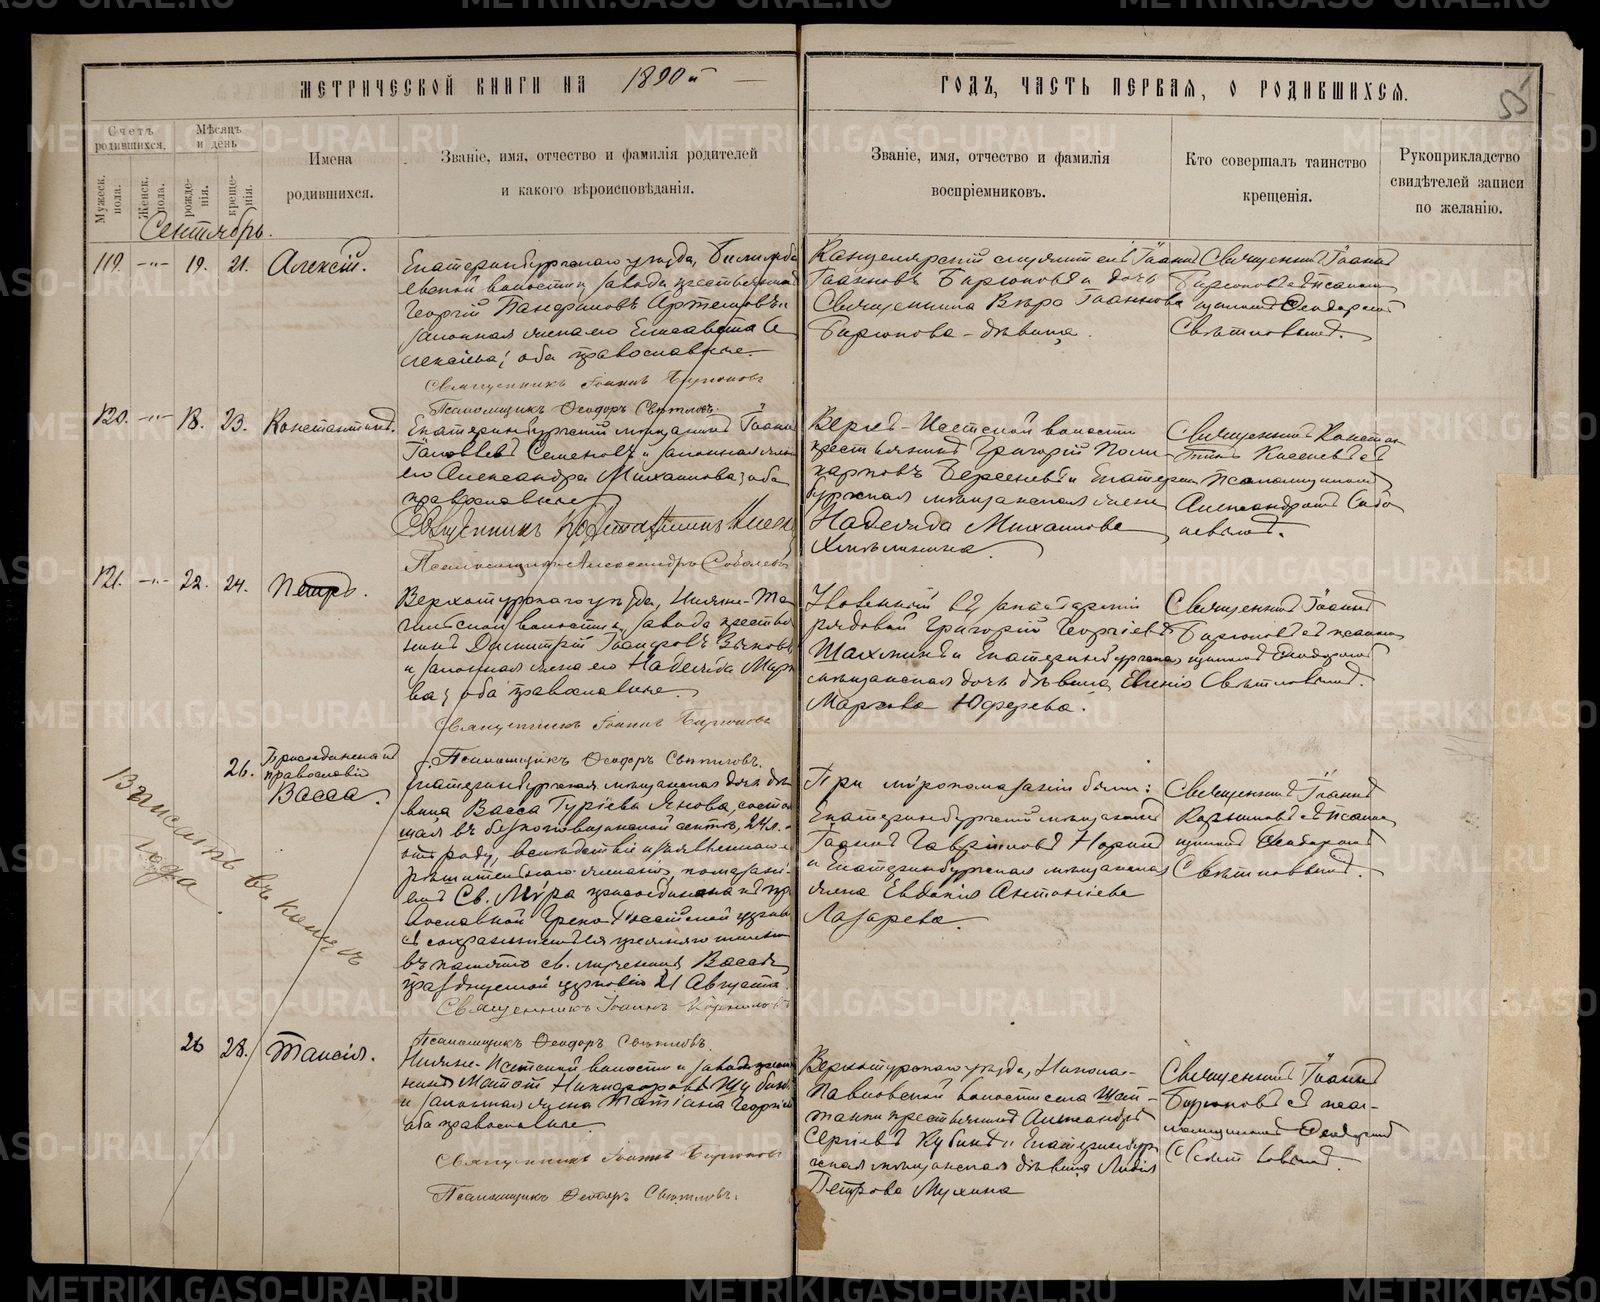 МЕТРИЧЕСКОЙ КНИГИ НА 1890 й
ГОДЪ, ЧАСТЬ ПЕРВАЯ, О РОДИВШИХСЯ.
55
Счетъ родившихся.
Мѣсяцъ и день
Имена родившихся.
Званіе, имя, отчество и фамилія родителей
и какого вѣроисповѣданія.
Званіе, имя, отчество и фамилія
воспріемниковъ.
Кто совершалъ таинство
крещенія.
Рукоприкладство
свидѣтелей записи
по желанію.
Мужеск. пола.
Женск. пола.
рожде-нія.
креще-нія.
Сентябрь.
119. -"- 19. 21. Алексій.
Екатеринбургскаго уѣзда, Билимба
евской волости и завода крестьянинъ
Георгій Панфиловъ Артемовъ и
законная жена его Елисавета А
лексіева; оба православные.
Священникъ Іоаннъ Бирюковъ
Псаломщикъ Ѳеодоръ Свѣтловъ.
Канцелярскій служитель Іоаннъ
Іоанновъ Бирюковъ и дочь
Священника Вѣра Іоаннова
Бирюкова - дѣвица.
Священникъ Іоаннъ
Бирюковъ съ псалом
щикомъ Ѳеодоромъ
Свѣтловымъ.
120. -"- 18. 23. Константинъ.
Екатеринбургскій мѣщанинъ Іоаннъ
Іаковлевъ Семеновъ и законная жена
его Александра Михаилова; оба
православные
Священникъ Константинъ
Псаломщикъ Александръ Соболевъ
Верхъ-Исетской волости
крестьянинъ Григорій Поли
карповъ Берсеневъ и Екатерин
бургская мѣщанская жена
Надежда Михаилова
Священникъ Констан
тинъ
Псаломщикомъ
Александромъ Собо
левымъ.
121. -"- 22. 24. Петръ.
Верхотурскаго уѣзда, Нижне-Та
гильской волости и завода крестья
нинъ Димитрій
и законная жена его Надежда
ва; оба православные.
Священникъ Іоаннъ Бирюковъ
Псаломщикъ Ѳеодоръ Свѣтловъ.
Уволенный въ запасъ арміи
рядовой Григорій Георгіевъ
Шахминъ и Екатеринбургская
мѣщанская дочь дѣвица Евгенія
Маркова Юферева.
Священникъ Іоаннъ
Бирюковъ съ псалом
щикомъ Ѳеодоромъ
Свѣтловымъ.
Выписать въ концѣ
года
26. Присоединена къ
православію
Васса.
Екатеринбургская мѣщанская дочь дѣ
вица Васса Гуріева Янова, состо
щая въ безпоповщинской сектѣ, 24 л.
отъ роду, вслѣдствіе изъявленнаго
рѣшительнаго желанія, помазані
емъ Св. Мѵра присоединена къ пр
авославной Греко-Россійской церкви
съ сохраненіемъ ея прежняго имени
въ память св. мученицы Вассы,
празднуемой церковію 21 Августа.
Священникъ Іоаннъ Корниловъ
Псаломщикъ Ѳеодоръ Свѣтловъ.
При мѵропомазаніи были:
Екатеринбургскій мѣщанинъ
Іоаннъ Гавріиловъ
и Екатеринбургская мѣщанская
жена Евдокія Антоніева
Лазарева.
Священникъ Іоаннъ
Корниловъ съ псалом
щикомъ Ѳеодоромъ
Свѣтловымъ.
26 28. Таисія.
Нижне-Исетской волости и завода крестья
нинъ Никифоровъ
и законная жена Татіана Георгіева
оба православные.
Священникъ Іоаннъ Бирюковъ
Псаломщикъ Ѳеодоръ Свѣтловъ.
Верхотурскаго уѣзда, Никола-
Павловской волости села Шай-
танки крестьянинъ Александръ
Сергіевъ Кубинъ и Екатеринбург
ская мѣщанская дѣвица Лидія
Петрова Мухина
Священникъ Іоаннъ
Бирюковъ съ псал-
омщикомъ Ѳеодоромъ
Свѣтловымъ.
METRIKI.GASO-URAL.RU